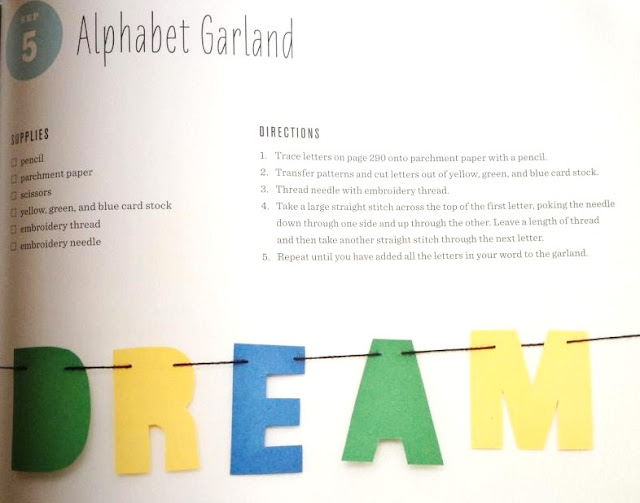 SEP
5
Alphabet Garland
SUPPLIES
pencil
parchment paper
scissors
yellow, green, and blue card stock
embroidery thread
embroidery needle
DIRECTIONS
1. Trace letters on page 290 onto parchment paper with a pencil.
2. Transfer patterns and cut letters out of yellow, green, and blue card stock.
3. Thread needle with embroidery thread.
4. Take a large straight stitch across the top of the first letter, poking the needle
down through one side and up through the other. Leave a length of thread
and then take another straight stitch through the next letter.
5. Repeat until you have added all the letters in your word to the garland.
DREAM